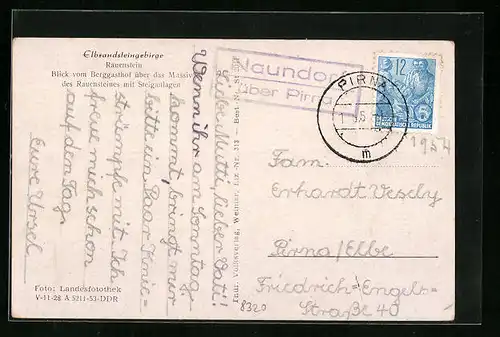 Elbsandsteingebirge
Rauenstein
Blick vom Berggasthof über das Massiv
des Rauensteines mit Steiganlagen
Liebe Mutti, lieber Vati!
Wenn ihr am Sonntag
kommt, bringt mir
bitte ein Paar Knie=
strümpfe mit. Ich
freue mich schon
auf den Tag.
Eure Ursel
Foto: Landesfotothek
V-11-28 A 5211-53-DDR
Volksverlag, Weimar, Liz.-Nr.
8320
Naundorf
über Pirna
PIRNA
m
12
DEUTSCHE
DEMOKRATISCHE REPUBLIK
1954
Fam.
Erhardt Vesely
Pirna/Elbe
Friedrich-Engels-
Straße 40